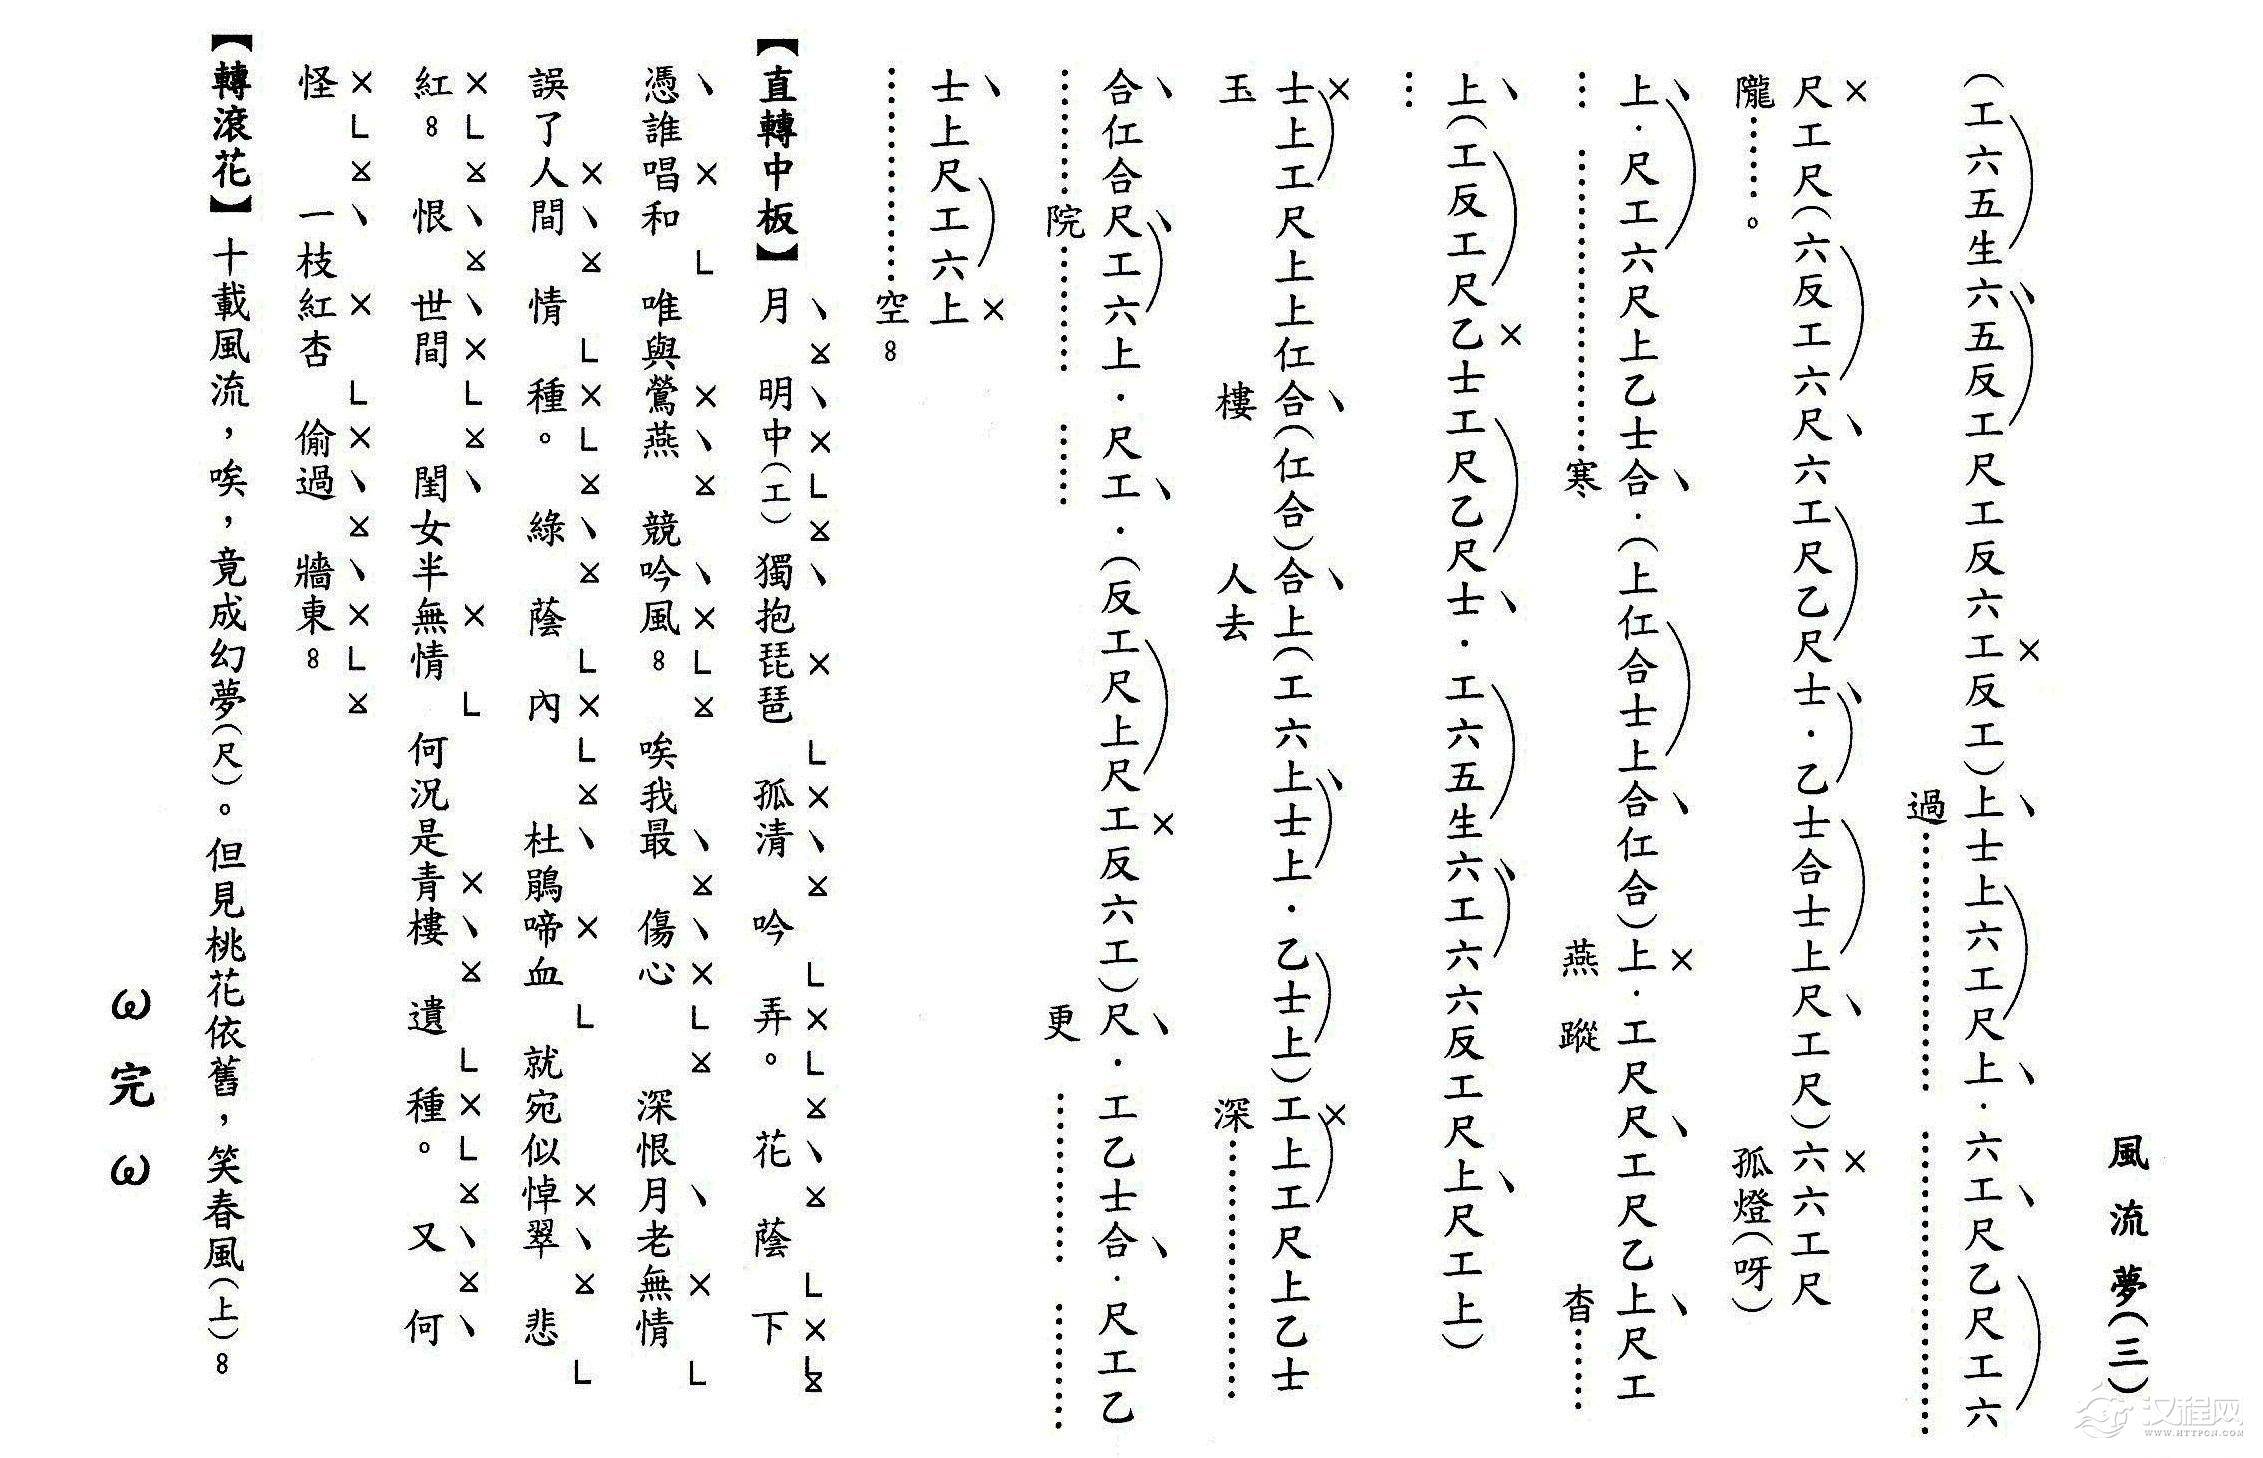 風流夢(三)
(工六五生六五反工尺工反六工反工)上士上六工尺上．六工尺乙尺工六
過……………… ………………
尺工尺(六反工六尺六工尺乙尺士．乙士合士上尺工尺)六六工尺
隴……。 孤燈(呀)
上．尺工六尺上乙士合．(上仜合士上合仜合)上．工尺尺工尺乙上尺工
… ………………寒 燕蹤 杳……
上(工反工尺乙士工尺乙尺士．工六五生六工六六反工尺上尺工上)
…
士上工尺上上仜合(仜合)合上(工六上士上．乙士上)工上工尺上乙士
玉 樓 人去 深………………
合仜合尺工六上．尺工．(反工尺上尺工反六工)尺．工乙士合．尺工乙
………院……… …… 更 ………… ………
士上尺工六上
……………空8
【直轉中板】月 明中(工)獨抱琵琶 孤清 吟 弄。花 蔭 下
憑誰唱和 唯與鶯燕 競吟風8 唉我最 傷心 深恨月老無情
誤了人間 情 種。綠 蔭 內 杜鵑啼血 就宛似悼翠 悲
紅8 恨 世間 閨女半無情 何況是青樓 遺 種。又 何
怪 一枝紅杏 偷過 牆東8
【轉滾花】十載風流，唉，竟成幻夢(尺)。但見桃花依舊，笑春風(上)8
ω 完 ω
汉程网
WWW.HTTPCN.COM